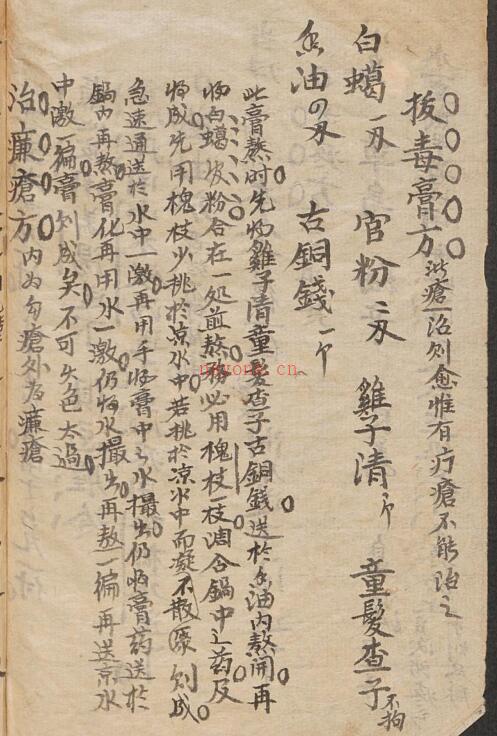 拔毒膏方 諸瘡一治則愈惟有疔瘡不能治之
白蠟一刄 官粉二刄 雞子清 童髮查子不拘
香油四刄 古銅錢一个
此膏熬时先將雞子清童髮查子古銅錢送於香油内熬開再
將白蠟官粉合在一処煎熬務必用槐枝一枝調合鍋中之药及
將成先用槐枝少挑於凉水中若挑於凉水中而凝不散原則成
急速通送於水中一激再用手將膏中之水撮出仍將膏药送於
鍋内再熬膏化再用水一激仍將水撮出再熬一徧再送凉水
中激一徧膏則成矣不可火色太過
治臁瘡方 内为勾瘡外为臁瘡